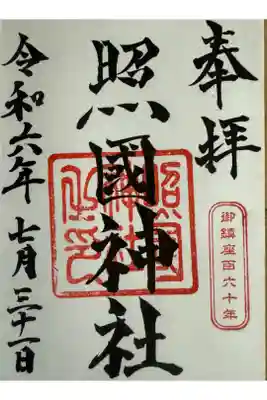 奉拝
御鎮座百六十年
照國神社
令和六年七月三十一日